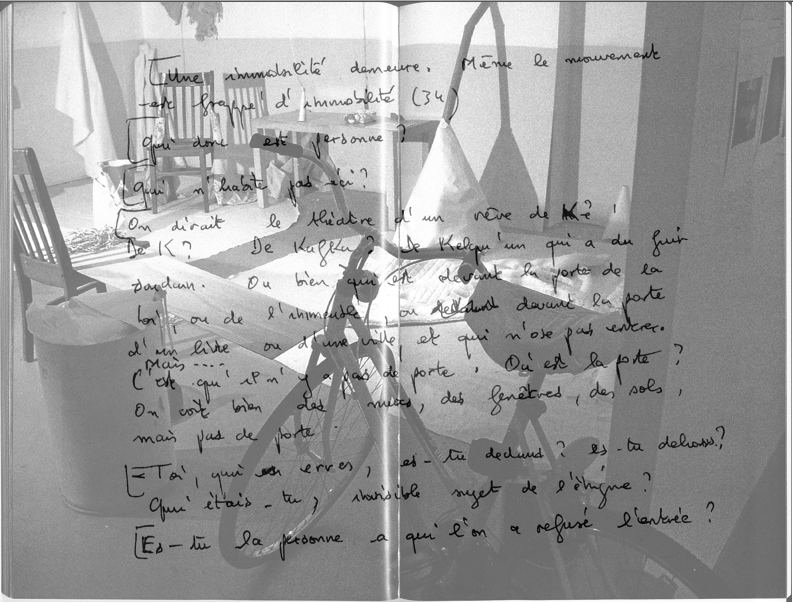 Une immobilité demeure. Même le mouvement
est frappé d'immobilité (34)
Qui donc est personne ?
Qui n'habite pas ici ?
On dirait le théâtre d'un rêve de K ?
De K ? De Kafka ? De Kelqu'un qui a du fuir
soudain. Ou bien qui est devant la porte de la
Loi, ou de l'immeuble, ou devant la porte
d'un livre ou d'une ville, et qui n'ose pas entrer.
Mais ....
C'est qu'il n'y a pas de porte. Où est la porte ?
On voit bien des murs, des fenêtres, des sols,
mais pas de porte.
Toi, qui erres, es-tu dedans ? es-tu dehors ?
Qui étais-tu, invisible sujet de l'énigme ?
Es-tu la personne a qui l'on a refusé l'entrée ?